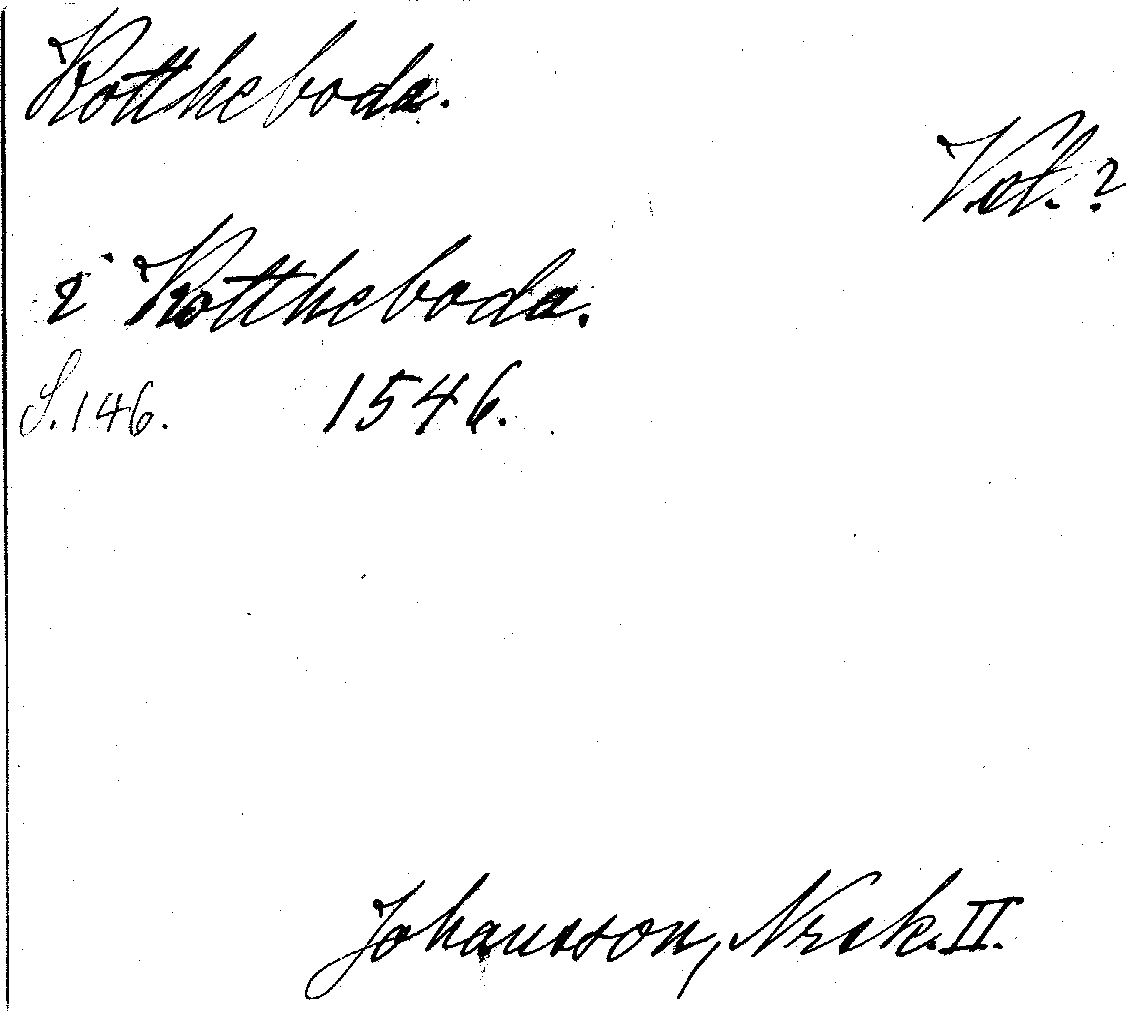 Kottheboda.
Vet.?
i Kottheboda.
S.146. 1546.
Johansson, Nrsk. II.